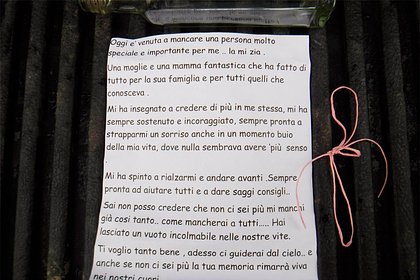 Oggi e' venuta a mancare una persona molto
speciale e importante per me .. la mi zia .
Una moglie e una mamma fantastica che ha fatto di
tutto per la sua famiglia e per tutti quelli che
conosceva .
Mi ha insegnato a credere di più in me stessa, mi ha
sempre sostenuto e incoraggiato, sempre pronta a
strapparmi un sorriso anche in un momento buio
della mia vita, dove nulla sembrava avere 'più senso
.
Mi ha spinto a rialzarmi e andare avanti .Sempre
pronta ad aiutare tutti e a dare saggi consigli..
Sai non posso credere che non ci sei più mi manchi
già cosi tanto.. come mancherai a tutti..... Hai
lasciato un vuoto incolmabile nelle nostre vite.
Ti voglio tanto bene , adesso ci guiderai dal cielo.. e
anche se non ci sei più la tua memoria rimarrà viva
nei nostri cuori